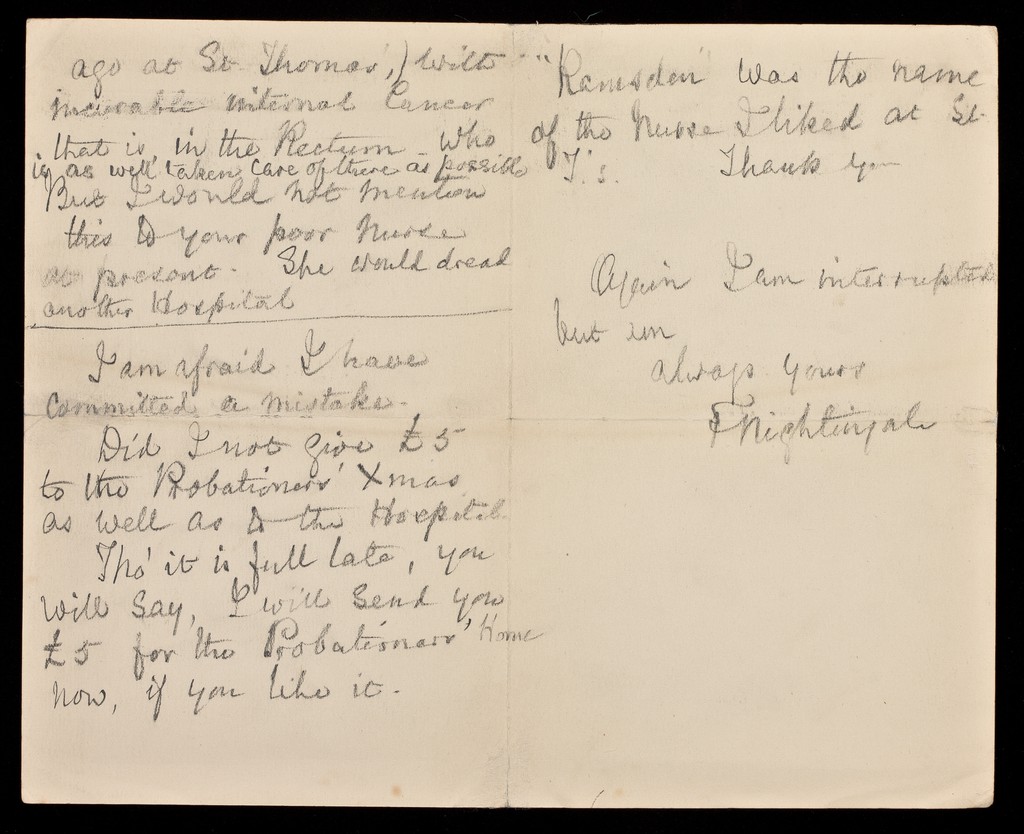 ago at St. Thomas',) with
incurable internal Cancer
that is, in the Rectum - who
is as well taken care of there as possible
But I would not mention
this to your poor Nurse
at present. She would dread
another Hospital
I am afraid I have
committed a mistake.
Did I not give £5
to the Probationers' Xmas
as well as to the Hospital.
Tho' it is full late, you
will say, I will send you
£5 for the Probationers' Home
now, if you like it.
"Ramsden" was the name
of the Nurse I liked at St.
T.'s. Thank you
Again I am interrupted
but am
always yours
F Nightingale